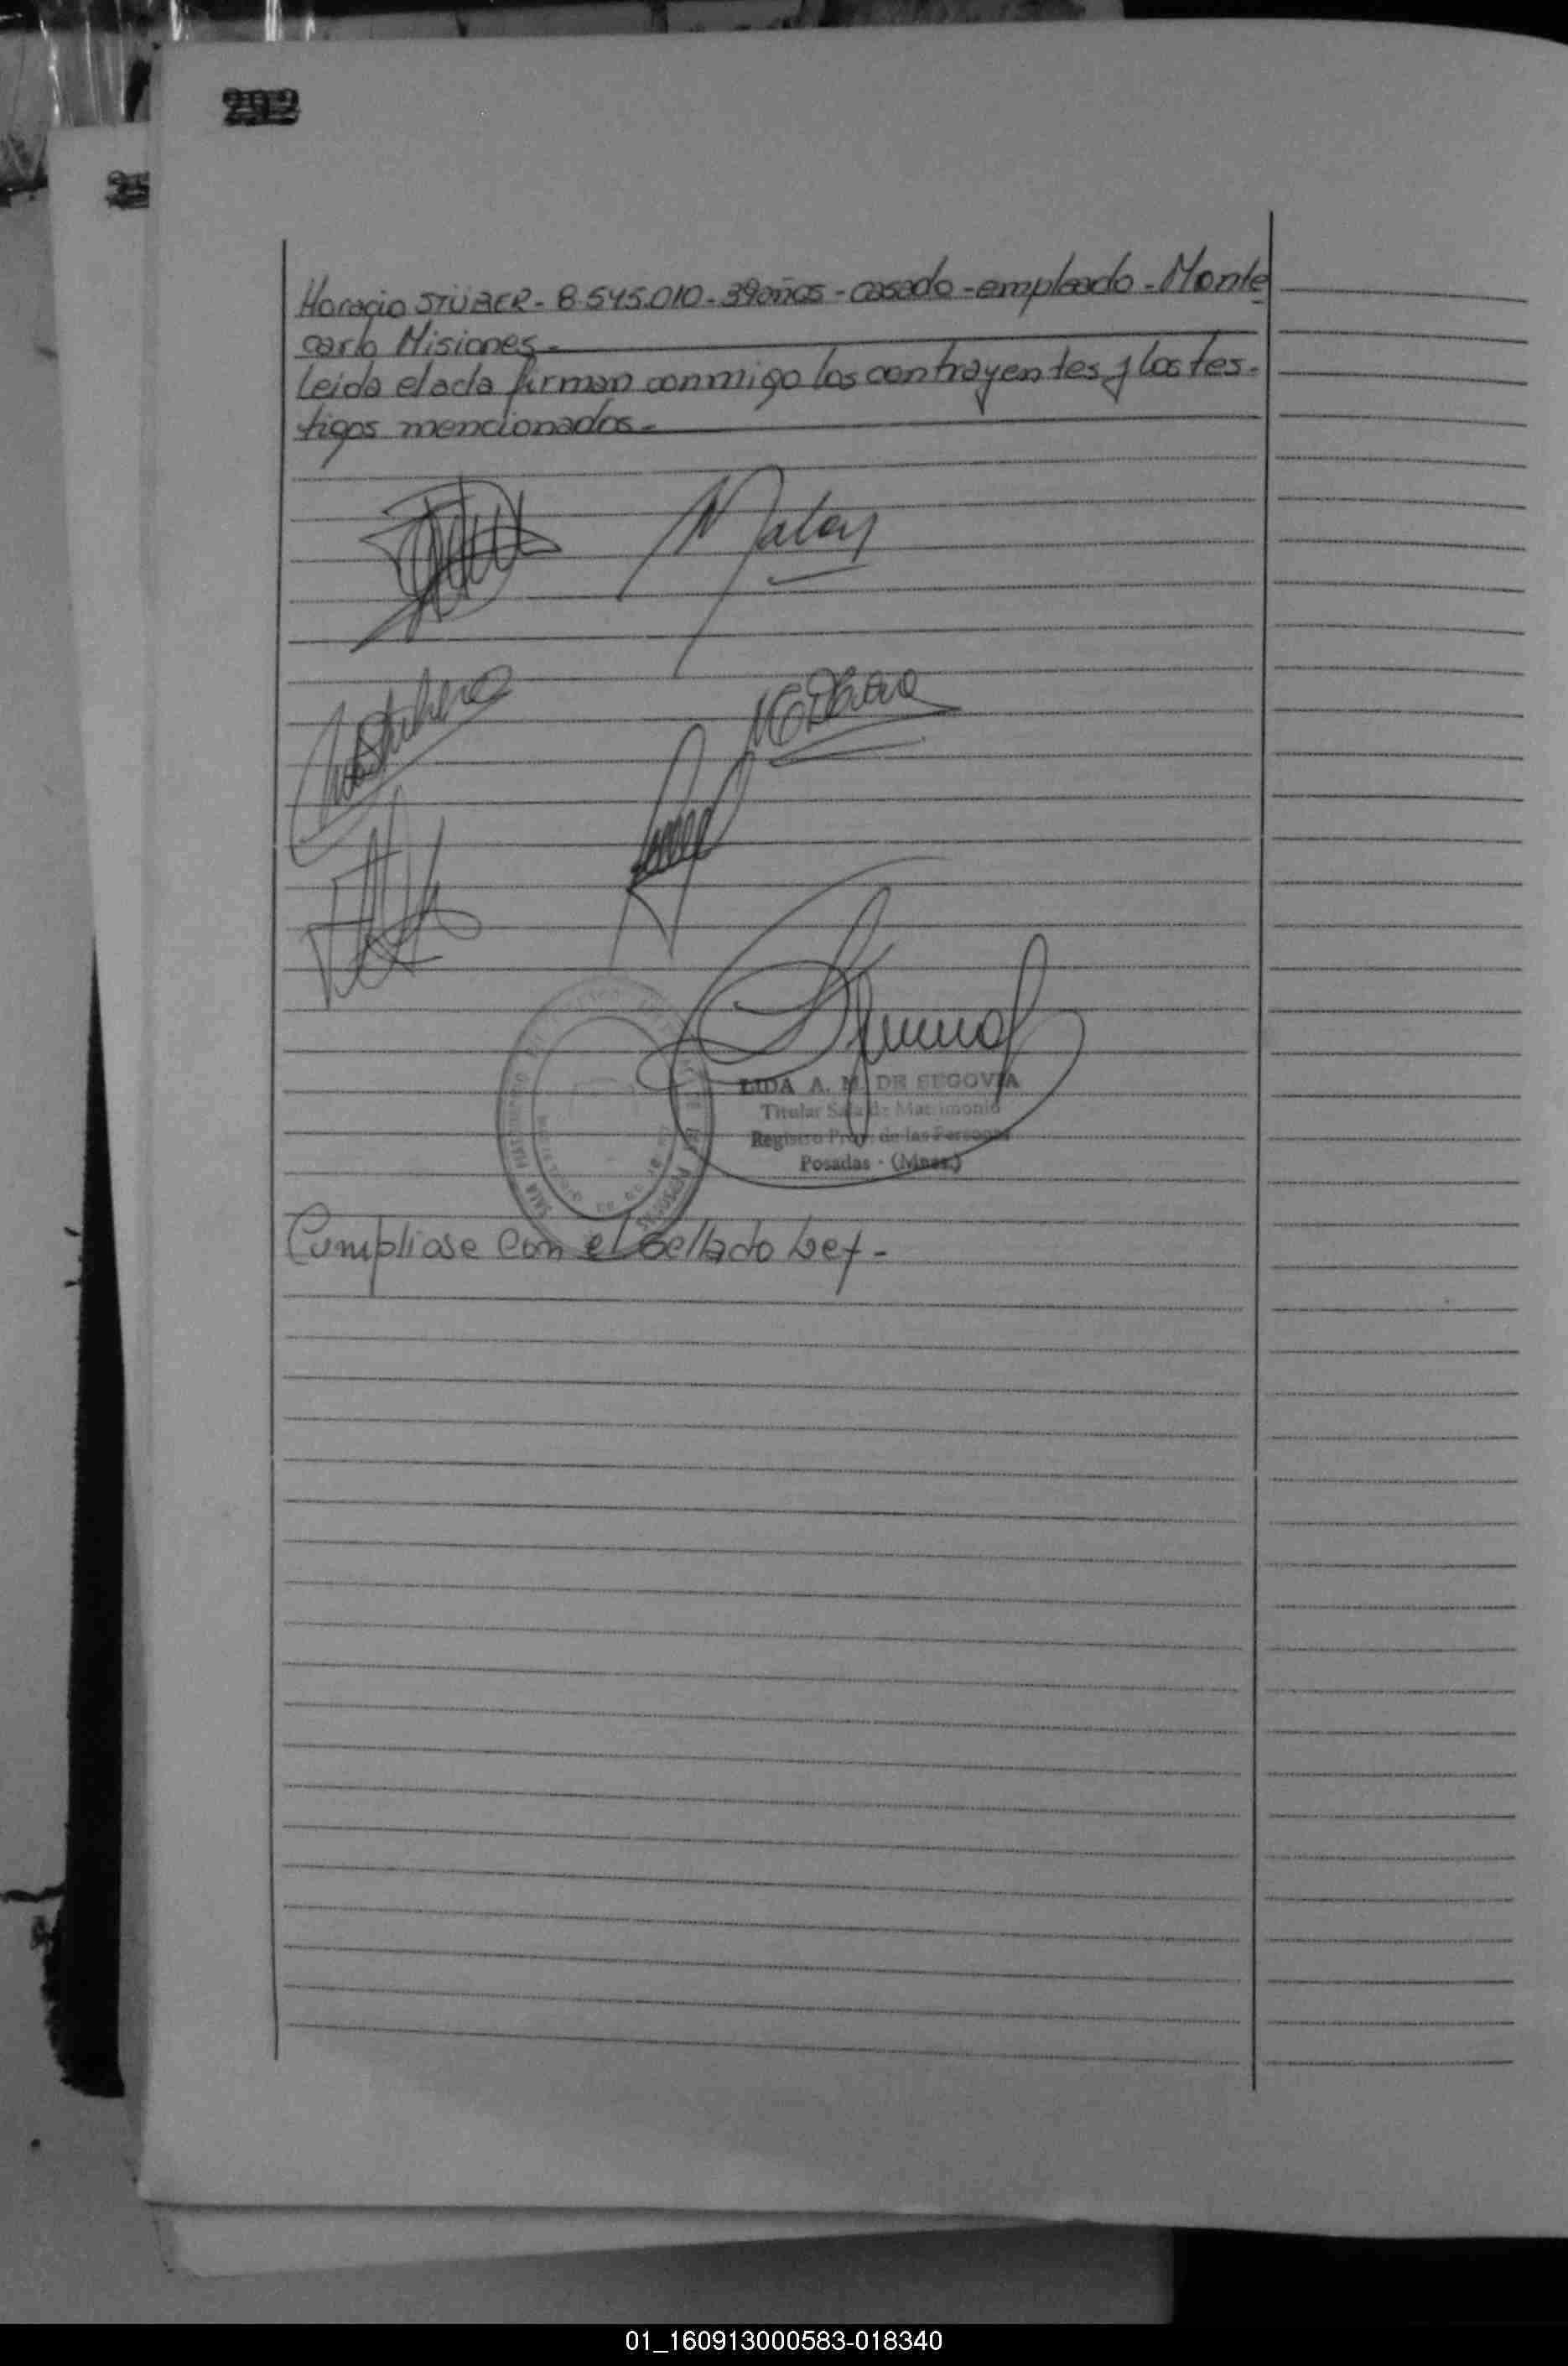 292
Horacio STÜBER - 8.545.010 - 39 años - casado - empleado - Monte
carlo Misiones -
Leida el acta firman conmigo los contrayentes y los tes-
tigos mencionados -
LIDA A. M. DE SEGOVIA
Titular Sala de Matrimonio
Registro Prov. de las Personas
Posadas - (Mnes.)
SALA MATRIMONIO
PERSONAS
Cumpliose con el sellado Ley -
01_160913000583-018340